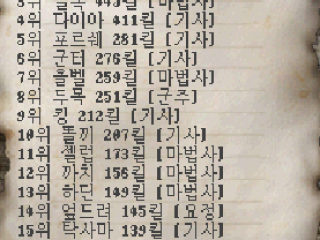 4위 다이아 411킬 [기사]
5위 포르쉐 281킬 [기사]
6위 군터 276킬 [기사]
7위 홀벨 259킬 [마법사]
8위 두목 251킬 [군주]
9위 킹 212킬 [기사]
10위 똘끼 207킬 [기사]
11위 셀럽 173킬 [마법사]
12위 까치 156킬 [마법사]
13위 하딘 149킬 [마법사]
14위 엎드려 145킬 [요정]
15위 탁사마 139킬 [기사]